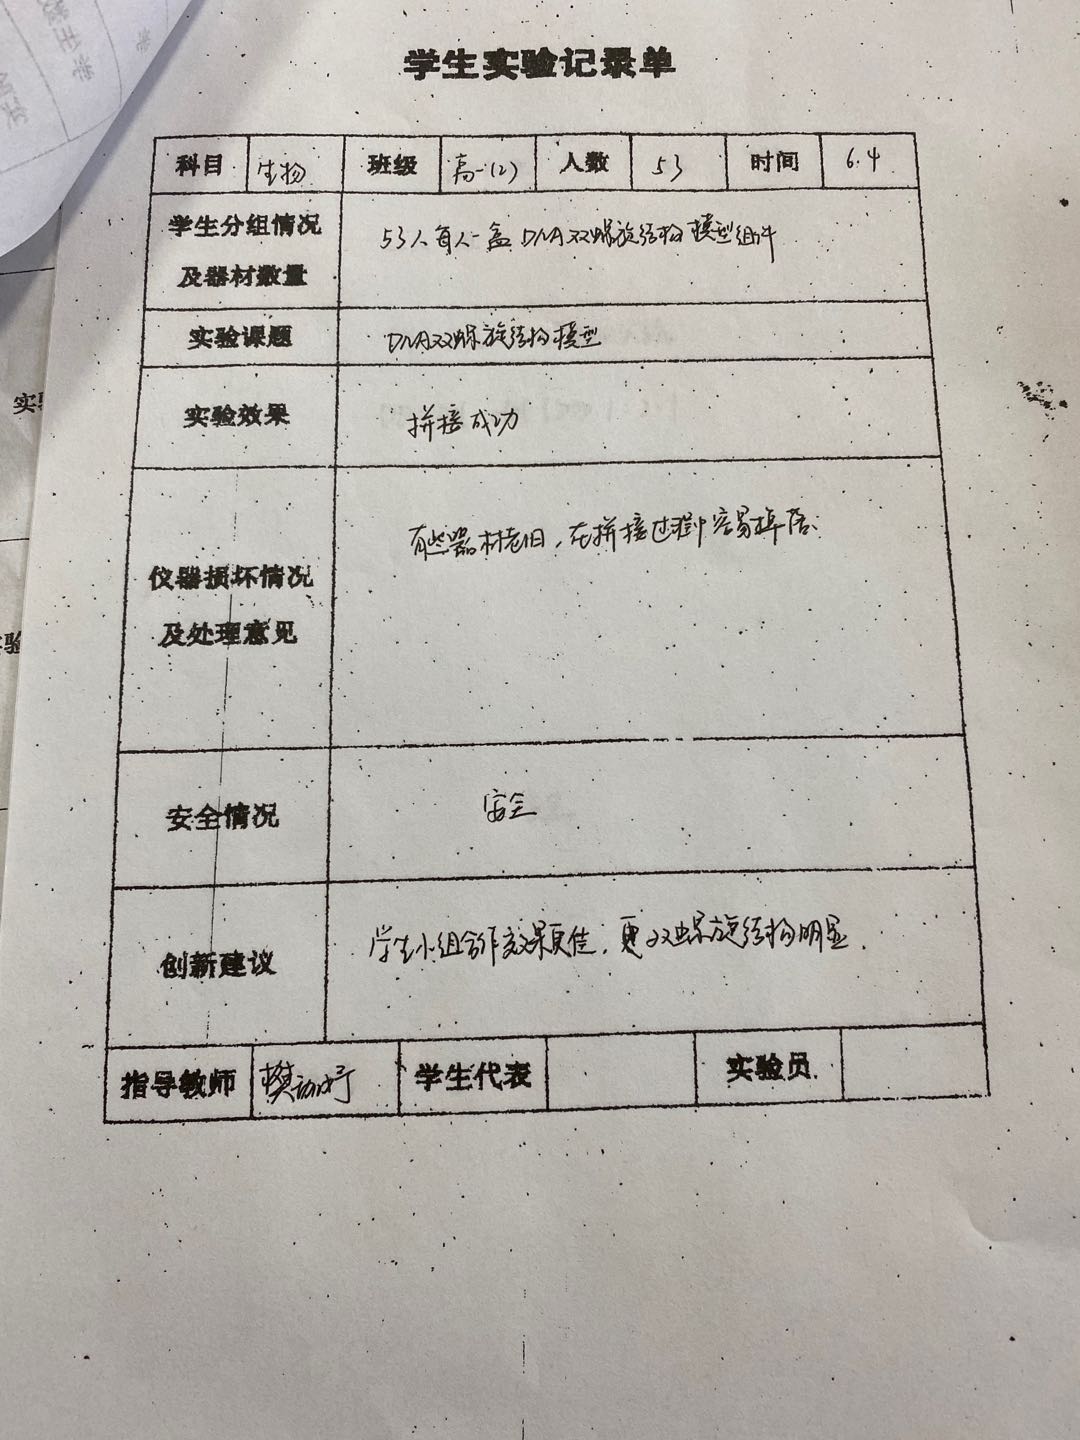 学生实验记录单
科目 生物 班级 高一(2) 人数 53 时间 6.4
学生分组情况
及器材数量
53人每人一盒DNA双螺旋结构模型组件
实验课题 DNA双螺旋结构模型
实验效果 拼接成功
有些器材老旧，在拼接过程中容易掉落.
仪器损坏情况
及处理意见
安全情况 安全
创新建议 学生小组合作效果更佳，更双螺旋结构明显.
指导教师 樊 学生代表 实验员